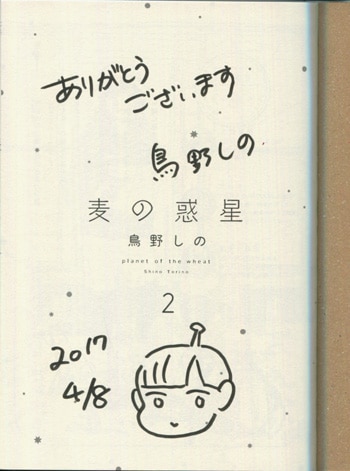 ありがとう
ございます
鳥野しの
麦の惑星
鳥野しの
planet of the wheat
Shino Torino
2
2017
4/8